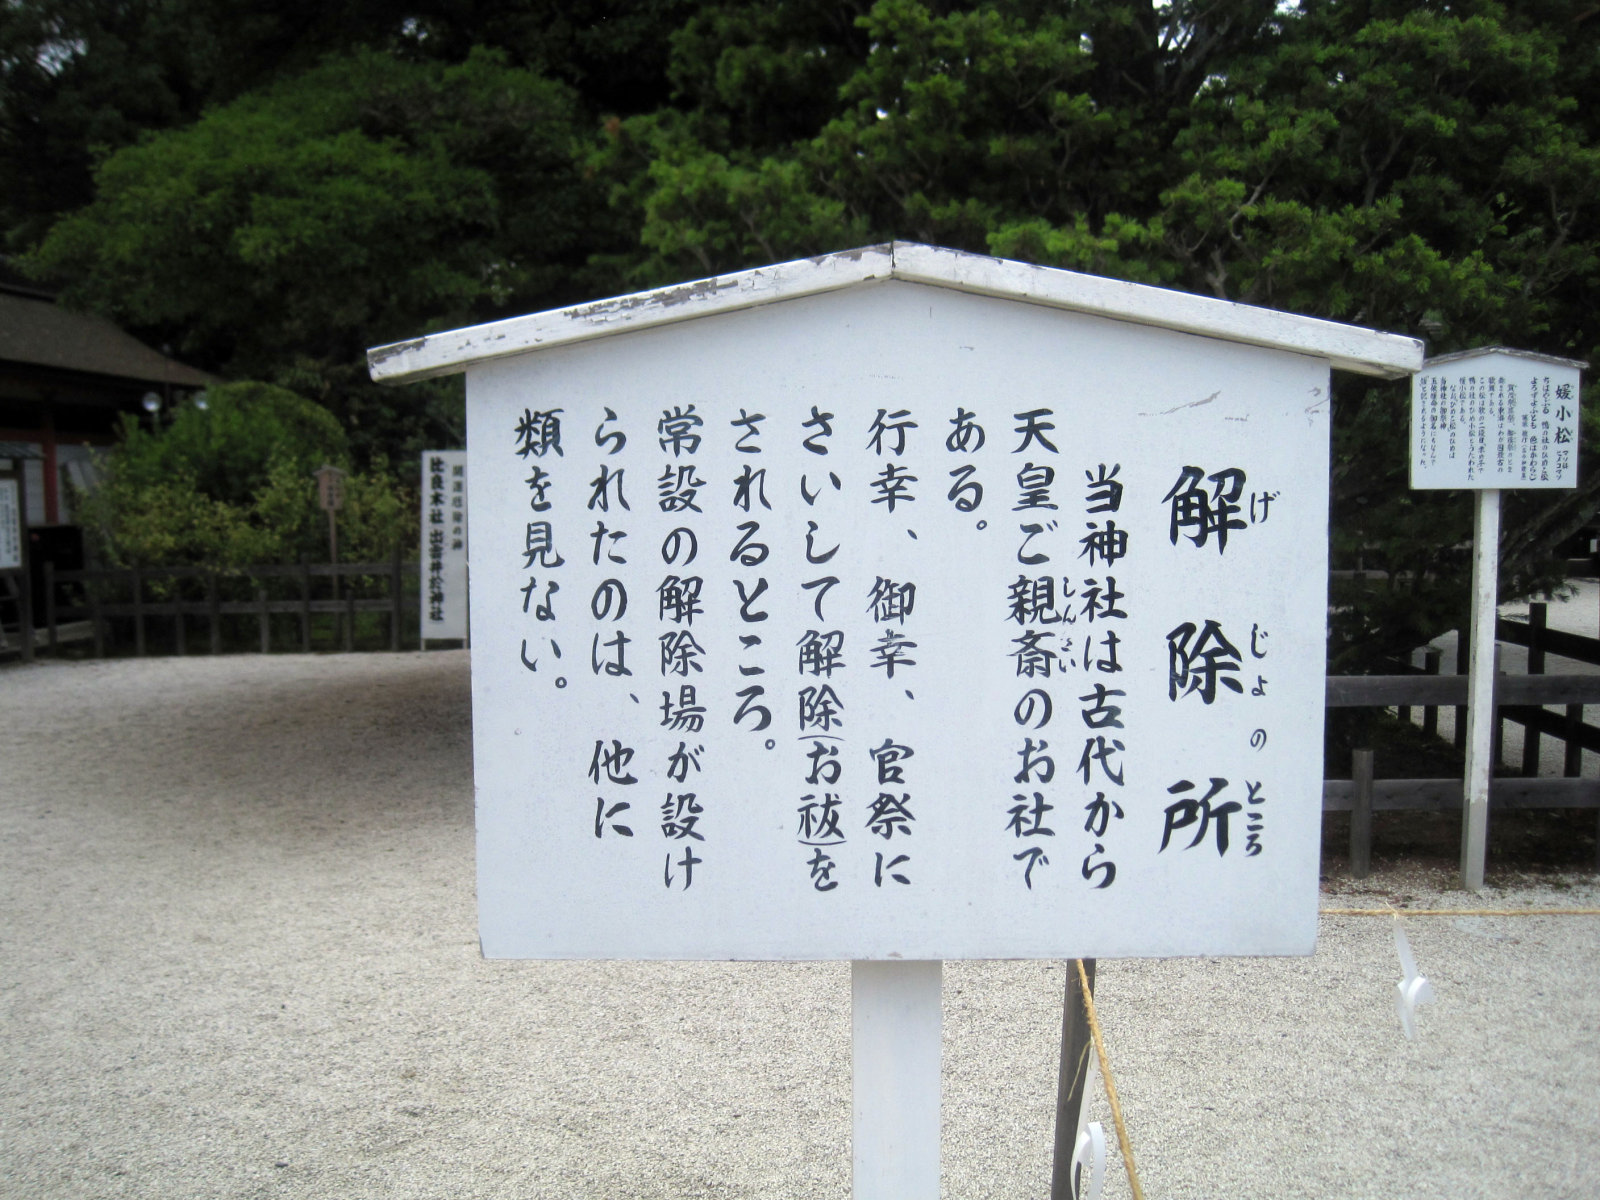 解除所
げじよのところ
当神社は古代から
天皇ご親斎のお社で
しんさい
ある。
行幸、御幸、官祭に
さいして解除(お祓)を
されるところ。
常設の解除場が設け
られたのは、他に
類を見ない。
媛小松
開運厄除の神
比良木社 出雲井於神社